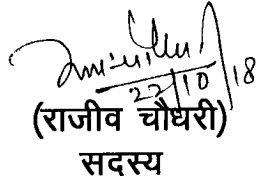 22/10/18
(राजीव चौधरी)
सदस्य